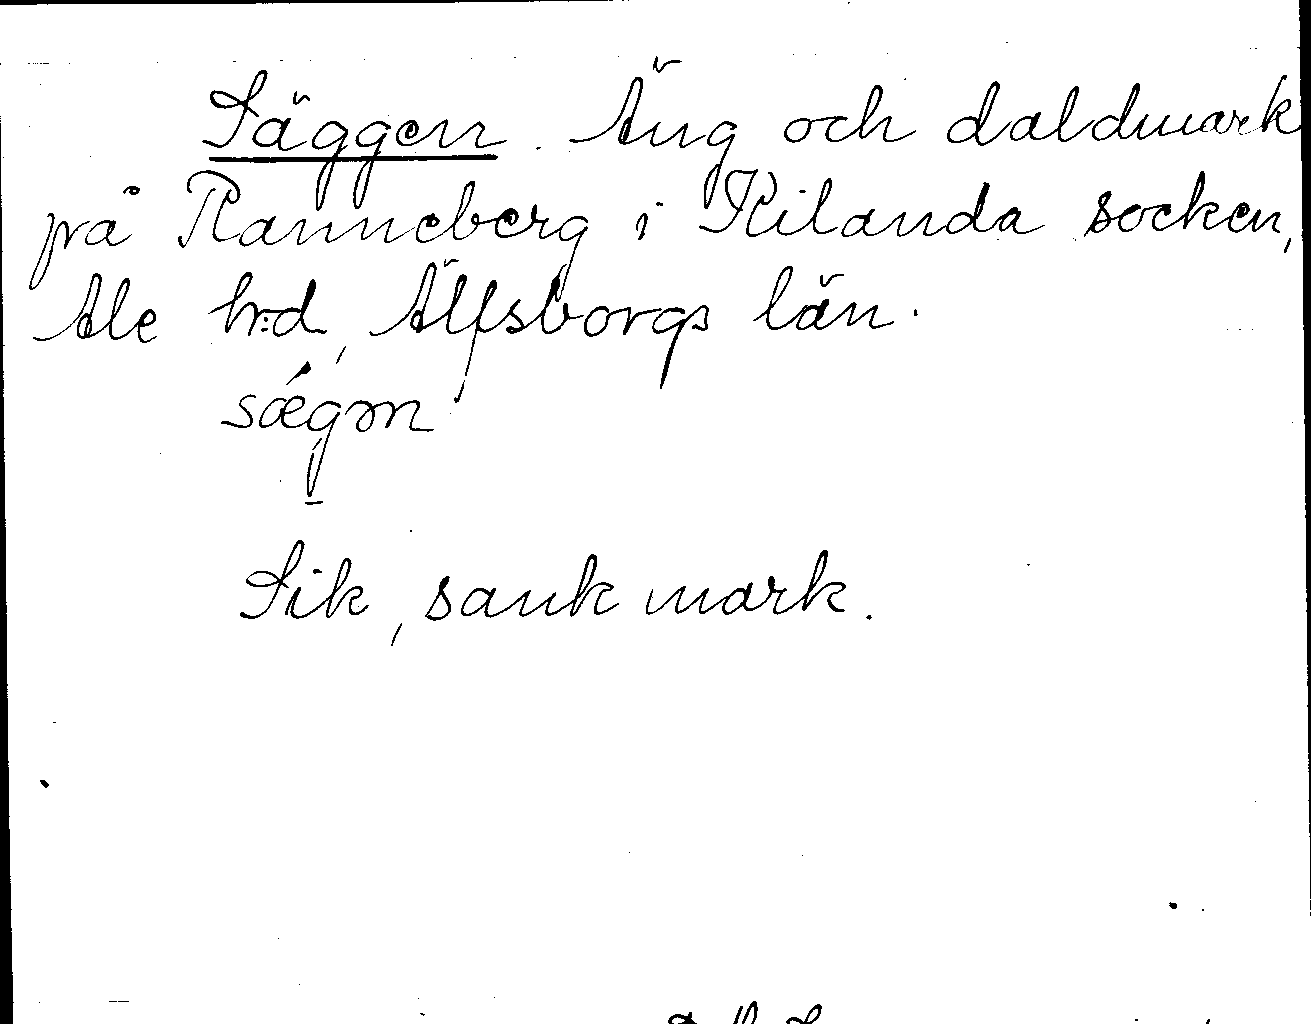 Säggen. Äng och daldmark
på Ranneberg i Kilanda socken,
Ale h:d, Älfsborgs län.
sǽgm
Sik, sank mark.